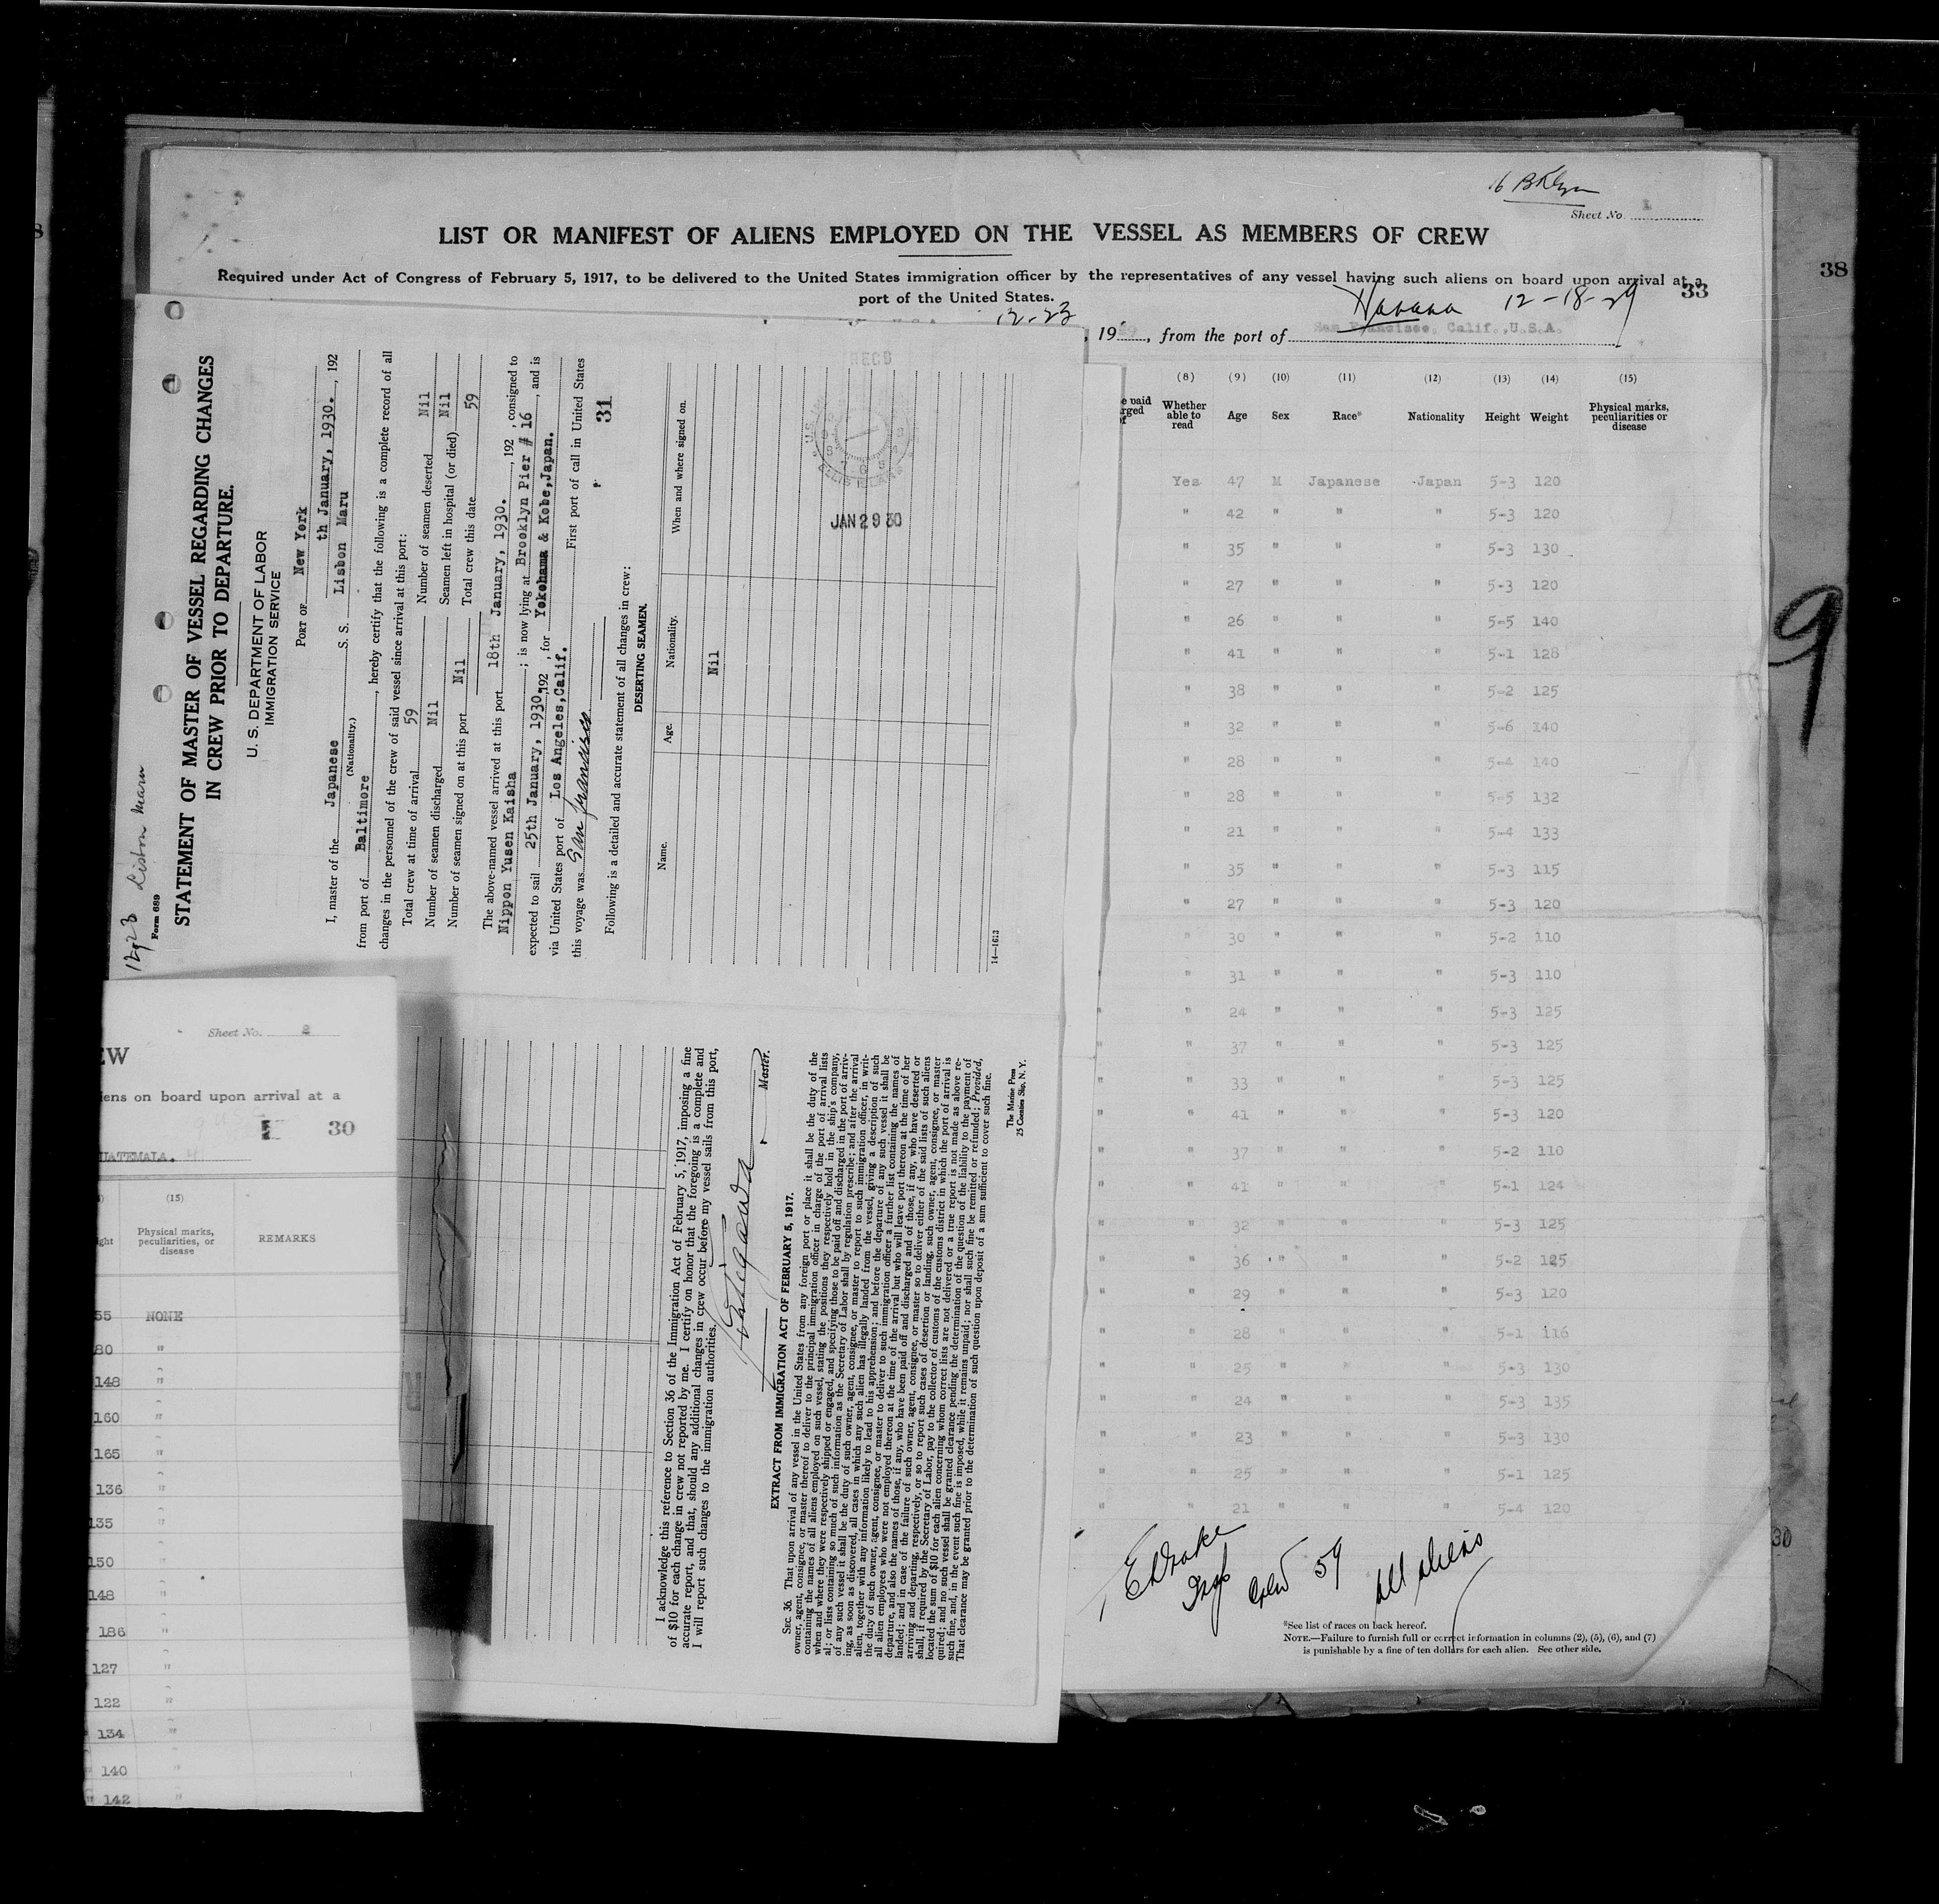 16 Bklyn
Sheet No. 1
LIST OR MANIFEST OF ALIENS EMPLOYED ON THE VESSEL AS MEMBERS OF CREW
Required under Act of Congress of February 5, 1917, to be delivered to the United States immigration officer by the representatives of any vessel having such aliens on board upon arrival at a
port of the United States.
33
38
12-23
Havana 12-18-29
, 19 , from the port of San Francisco, Calif.,U.S.A.
(8) (9) (10) (11) (12) (13) (14) (15)
Whether able to read Age Sex Race* Nationality Height Weight Physical marks, peculiarities or disease
Yes 47 M Japanese Japan 5-3 120
" 42 " " " 5-3 120
" 35 " " " 5-3 130
" 27 " " " 5-3 120
" 26 " " " 5-5 140
" 41 " " " 5-1 128
" 38 " " " 5-2 125
" 32 " " " 5-6 140
" 28 " " " 5-4 140
" 28 " " " 5-5 132
" 21 " " " 5-4 133
" 35 " " " 5-3 115
" 27 " " " 5-3 120
" 30 " " " 5-2 110
" 31 " " " 5-3 110
" 24 " " " 5-3 125
" 37 " " " 5-3 125
" 33 " " " 5-3 125
" 41 " " " 5-3 120
" 37 " " " 5-2 110
" 41 " " " 5-1 124
" 32 " " " 5-3 125
" 36 " " " 5-2 125
" 29 " " " 5-3 120
" 28 " " " 5-1 116
" 25 " " " 5-3 130
" 24 " " " 5-3 135
" 23 " " " 5-3 130
" 25 " " " 5-1 125
" 21 " " " 5-4 120
Crew 59 All aliens
*See list of races on back hereof.
NOTE.—Failure to furnish full or correct information in columns (2), (5), (6), and (7)
is punishable by a fine of ten dollars for each alien. See other side.
9
30
Lisbon Maru
Form 689
STATEMENT OF MASTER OF VESSEL REGARDING CHANGES
IN CREW PRIOR TO DEPARTURE.
U. S. DEPARTMENT OF LABOR
IMMIGRATION SERVICE
PORT OF New York
th January, 1930. , 192
I, master of the Japanese S. S. Lisbon Maru
(Nationality.)
from port of Baltimore , hereby certify that the following is a complete record of all
changes in the personnel of the crew of said vessel since arrival at this port:
Total crew at time of arrival 59 Number of seamen deserted Nil
Number of seamen discharged Nil Seamen left in hospital (or died) Nil
Number of seamen signed on at this port Nil Total crew this date 59
The above-named vessel arrived at this port 18th January, 1930. , 192 , consigned to
Nippon Yusen Kaisha ; is now lying at Brooklyn Pier # 16 , and is
expected to sail 25th January, 1930, 192 , for Yokohama & Kobe,Japan.
via United States port of Los Angeles,Calif. First port of call in United States
this voyage was San Francisco.
31
Following is a detailed and accurate statement of all changes in crew:
DESERTING SEAMEN.
Name. Age. Nationality. When and where signed on.
Nil
RECD
ELLIS ISLAND
JAN 29 30
14—1613
I acknowledge this reference to Section 36 of the Immigration Act of February 5, 1917, imposing a fine
of $10 for each change in crew not reported by me. I certify on honor that the foregoing is a complete and
accurate report, and that, should any additional changes in crew occur before my vessel sails from this port,
I will report such changes to the immigration authorities.
Master.
EXTRACT FROM IMMIGRATION ACT OF FEBRUARY 5, 1917.
SEC. 36. That upon arrival of any vessel in the United States from any foreign port or place it shall be the duty of the
owner, agent, consignee, or master thereof to deliver to the principal immigration officer in charge of the port of arrival lists
containing the names of all aliens employed on such vessel, stating the positions they respectively hold in the ship's company,
when and where they were respectively shipped or engaged, and specifying those to be paid off and discharged in the port of arriv-
al; or lists containing so much of such information as the Secretary of Labor shall by regulation prescribe; and after the arrival
of any such vessel it shall be the duty of such owner, agent, consignee, or master to report to such immigration officer, in writ-
ing, as soon as discovered, all cases in which any such alien has illegally landed from the vessel, giving a description of such
alien, together with any information likely to lead to his apprehension; and before the departure of any such vessel it shall be
the duty of such owner, agent, consignee, or master to deliver to such immigration officer a further list containing the names of
all alien employees who were not employed thereon at the time of the arrival but who will leave port thereon at the time of her
departure, and also the names of those, if any, who have been paid off and discharged and of those, if any, who have deserted or
landed; and in case of the failure of such owner, agent, consignee, or master so to deliver either of the said lists of such aliens
arriving and departing, respectively, or so to report such cases of desertion or landing, such owner, agent, consignee, or master
shall, if required by the Secretary of Labor, pay to the collector of customs of the customs district in which the port of arrival is
located the sum of $10 for each alien concerning whom correct lists are not delivered or a true report is not made as above re-
quired; and no such vessel shall be granted clearance pending the determination of the question of the liability to the payment of
such fine, and, in the event such fine is imposed, while it remains unpaid; nor shall such fine be remitted or refunded; Provided,
That clearance may be granted prior to the determination of such question upon deposit of a sum sufficient to cover such fine.
The Marine Press
25 Coenties Slip, N. Y.
Sheet No. 2
EW
iens on board upon arrival at a
30
UATEMALA.
(15)
ght Physical marks, peculiarities, or disease REMARKS
55 NONE
80 "
148 "
160 "
165 "
136 "
135 "
150 "
148 "
186 "
127 "
122 "
134 "
140 "
142 "